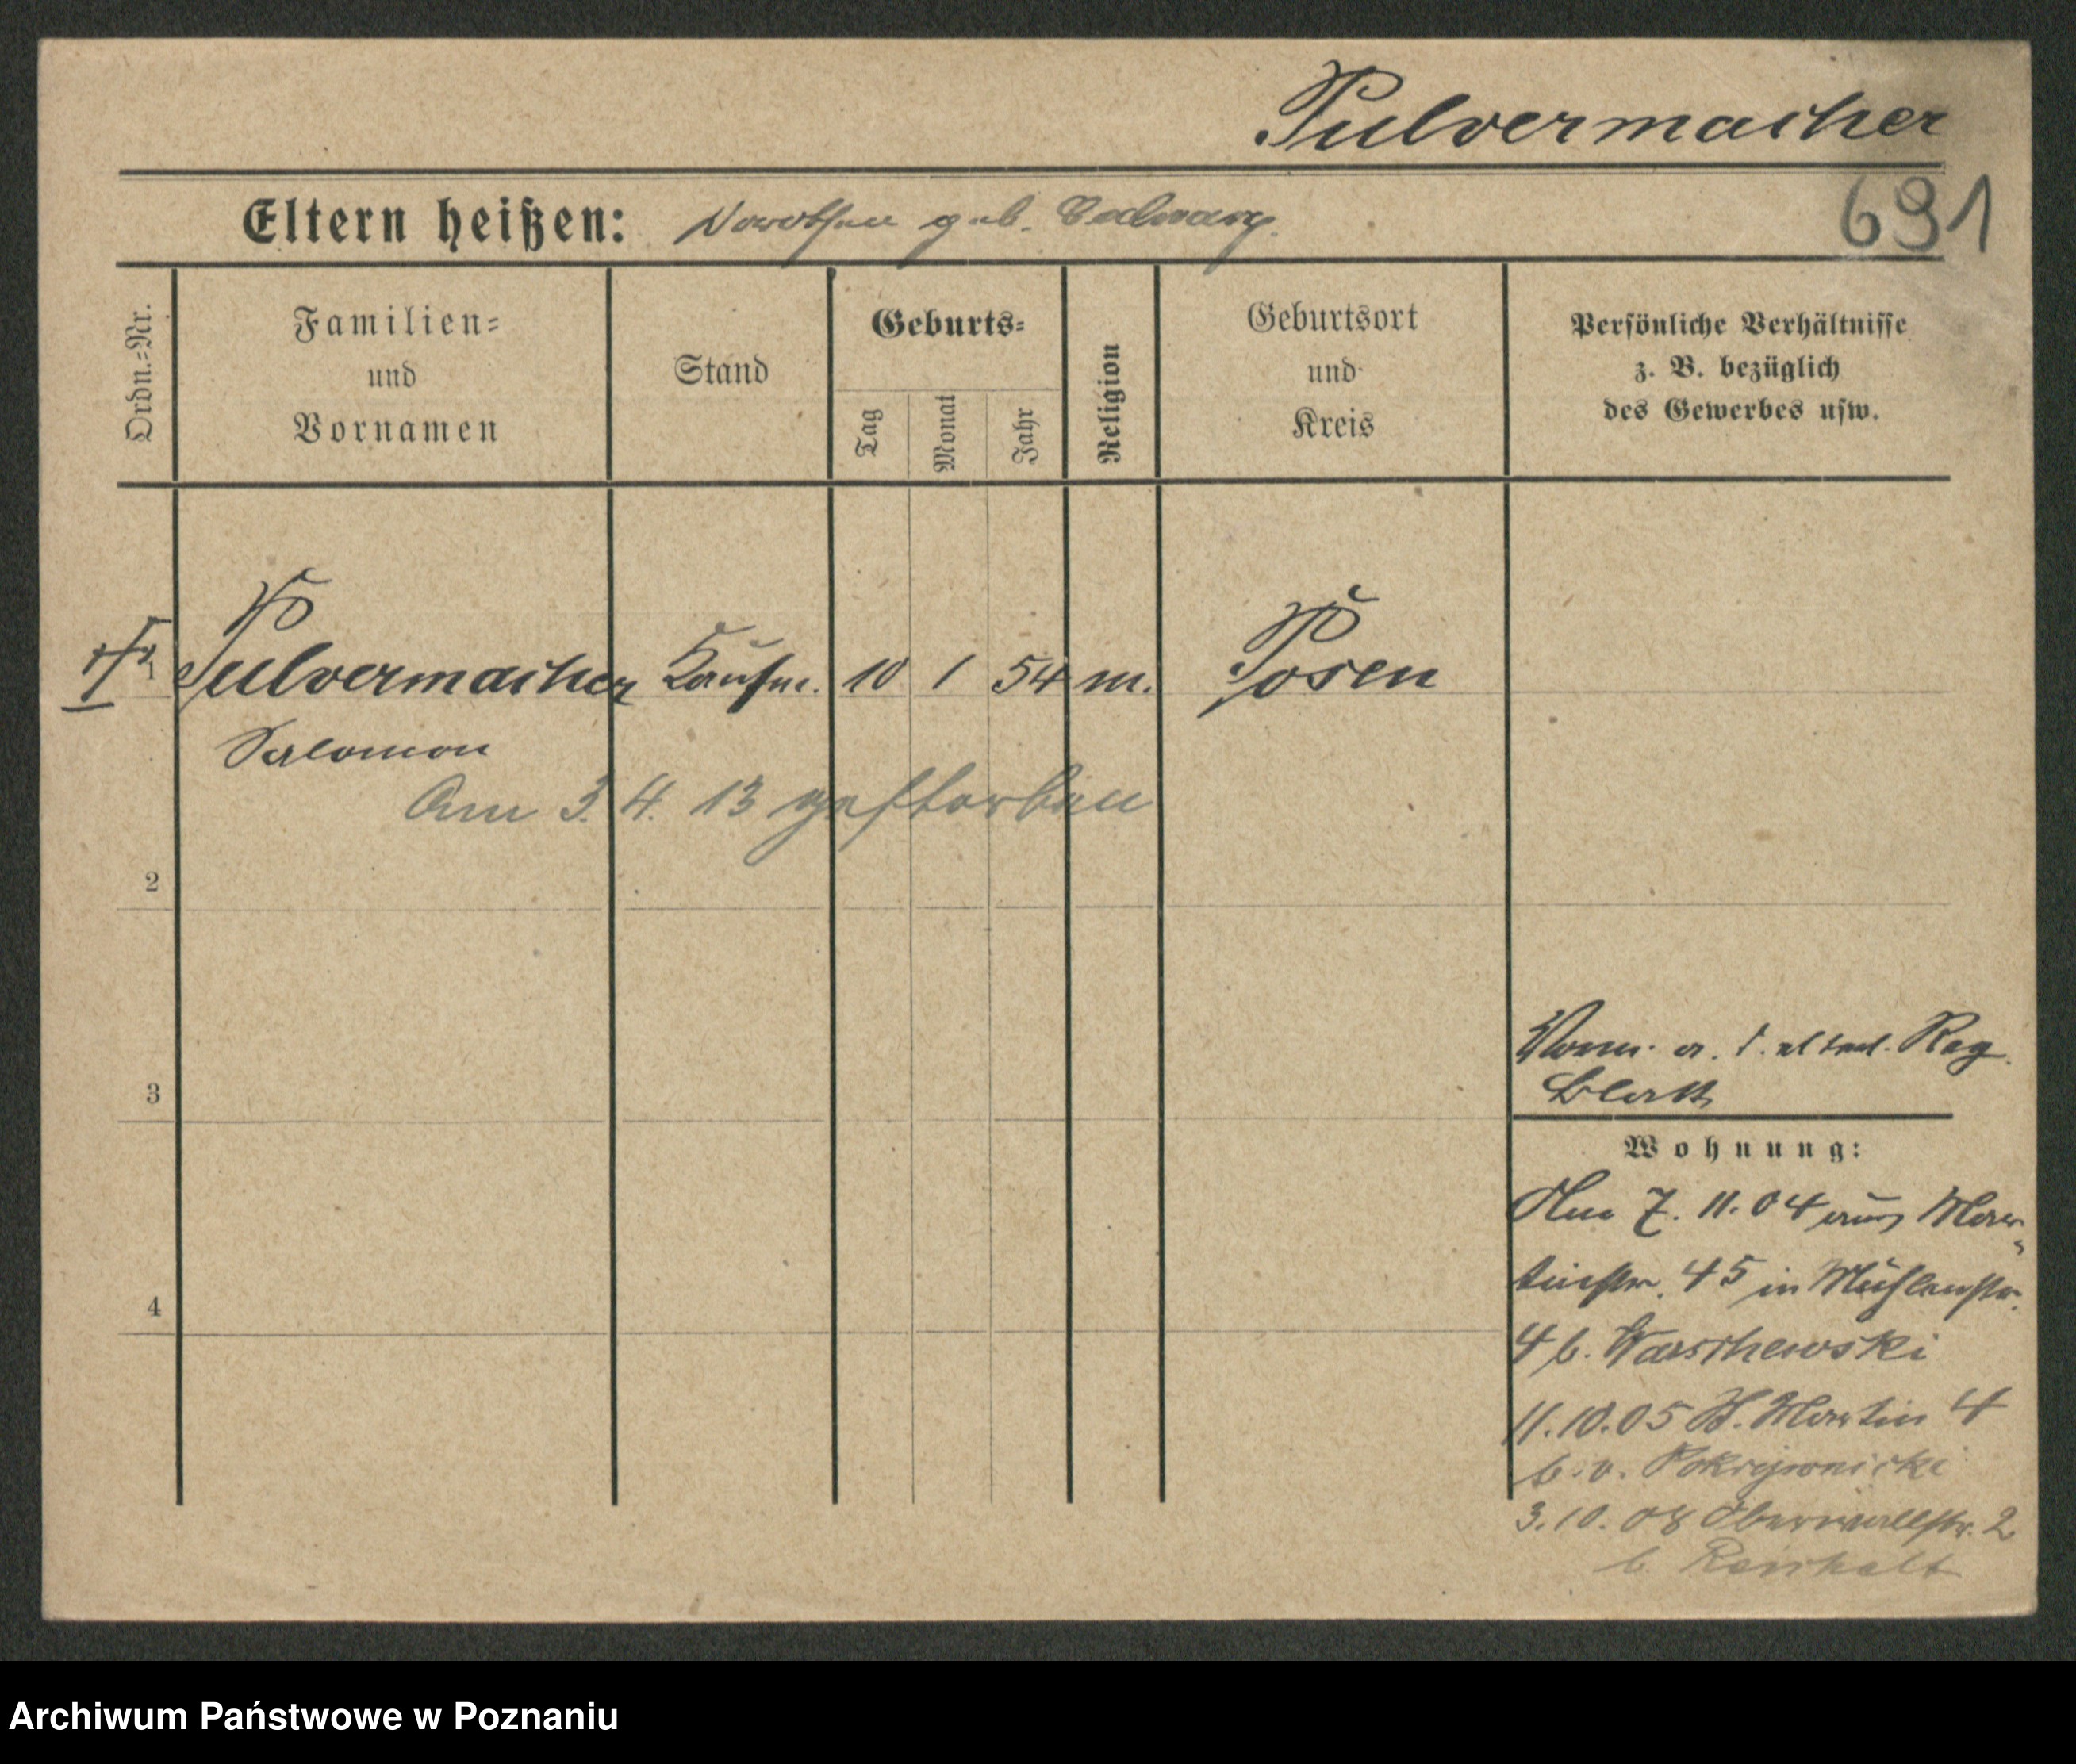 Pulvermacher
691
Eltern heißen: Dorothea geb.
Ordn.=Nr.
Familien=
und
Vornamen
Stand
Geburts=
Tag
Monat
Jahr
Religion
Geburtsort
und
Kreis
Persönliche Verhältnisse
z. B. bezüglich
des Gewerbes usw.
Pulvermacher Kaufm. 10 1 54 m. Posen
Salomon
Am 3. 4. 13 gestorben
2
3
4
Verm. a. d. Reg.
Blatt
Wohnung:
Am 7. 11. 04 aus Mar=
tinstr. 45 in Mühlenstr.
4 b. Warschewski
11.10.05 St. Martin 4
b. v. Pokrzywnicki
3.10.08 Oberwallstr. 2
b
Archiwum Państwowe w Poznaniu